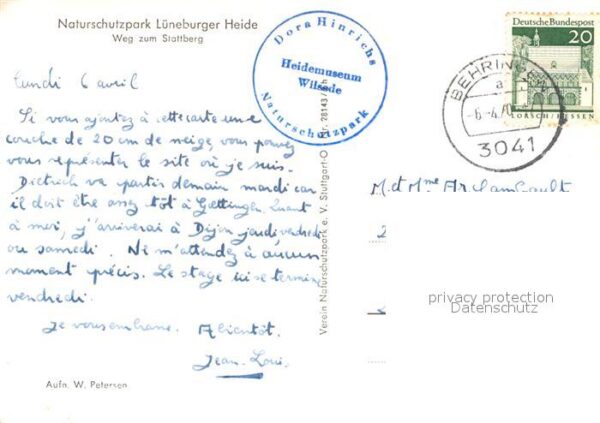 Naturschutzpark Lüneburger Heide
Weg zum Stattberg
Dora Hinrichs
Heidemuseum
Wilsede
Naturschutzpark
Deutsche Bundespost
20
LORSCH/HESSEN
BEHRINGEN
a
-6.-4.7
3041
Lundi 6 avril
Si vous ajoutez à cette carte une
couche de 20 cm de neige, vous pouvez
vous représenter le site où je suis.
Dietrich va partir demain mardi car
il doit être assez tôt à Goettingen. Quant
à moi, j'arriverai à Dijon jeudi vendredi
ou samedi. Ne m'attendez à aucun
moment précis. Le stage ici se termine
vendredi.
Je vous embrasse. A bientôt.
Jean-Louis
M. et Mme
Verein Naturschutzpark e. V. Stuttgart-O Nr. 28143/
privacy protection
Datenschutz
Aufn. W. Petersen